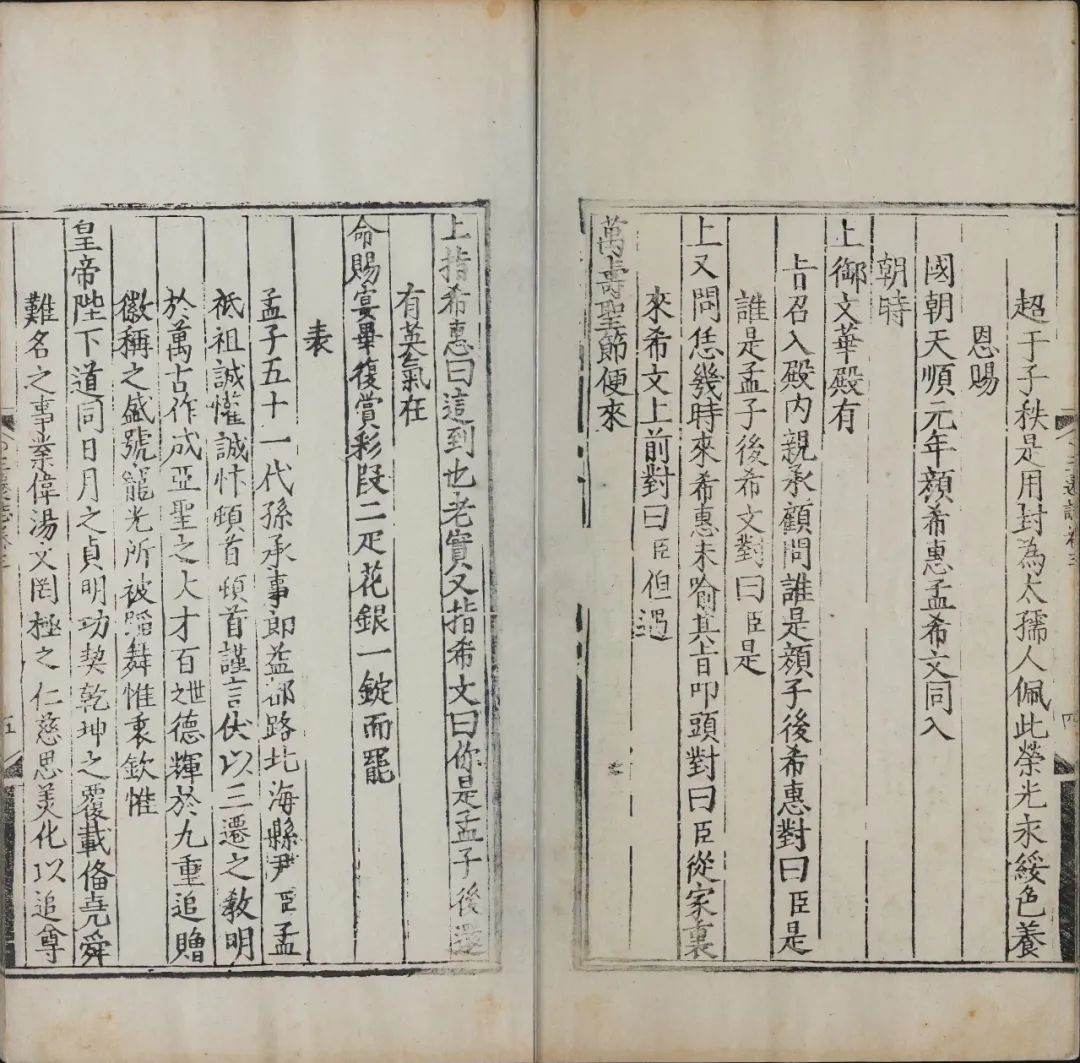 超于子秩是用封為太孺人佩此榮光永綏色養
恩賜
國朝天順元年顏希惠孟希文同入
朝時
上御文華殿有
旨召入殿内親承顧問誰是顏子後希惠對曰臣是
誰是孟子後希文對曰臣是
上又問恁幾時來希惠未喻其旨叩頭對曰臣從家裏
來希文上前對曰臣但遇
萬壽聖節便來
上指希惠曰這到也老實又指希文曰你是孟子後還
有英氣在
命賜宴畢復賞彩段二疋花銀一錠而罷
表
孟子五十一代孫承事郎益都路北海縣尹臣孟
祇祖誠懽誠忭頓首頓首謹言伏以三遷之教明
於萬古作成亞聖之大才百世之德輝於九重追贈
徽稱之盛號寵光所被蹈舞惟衷欽惟
皇帝陛下道同日月之貞明功契乾坤之覆載俻堯舜
難名之事業偉湯文罔極之仁慈思美化以追尊
四
五